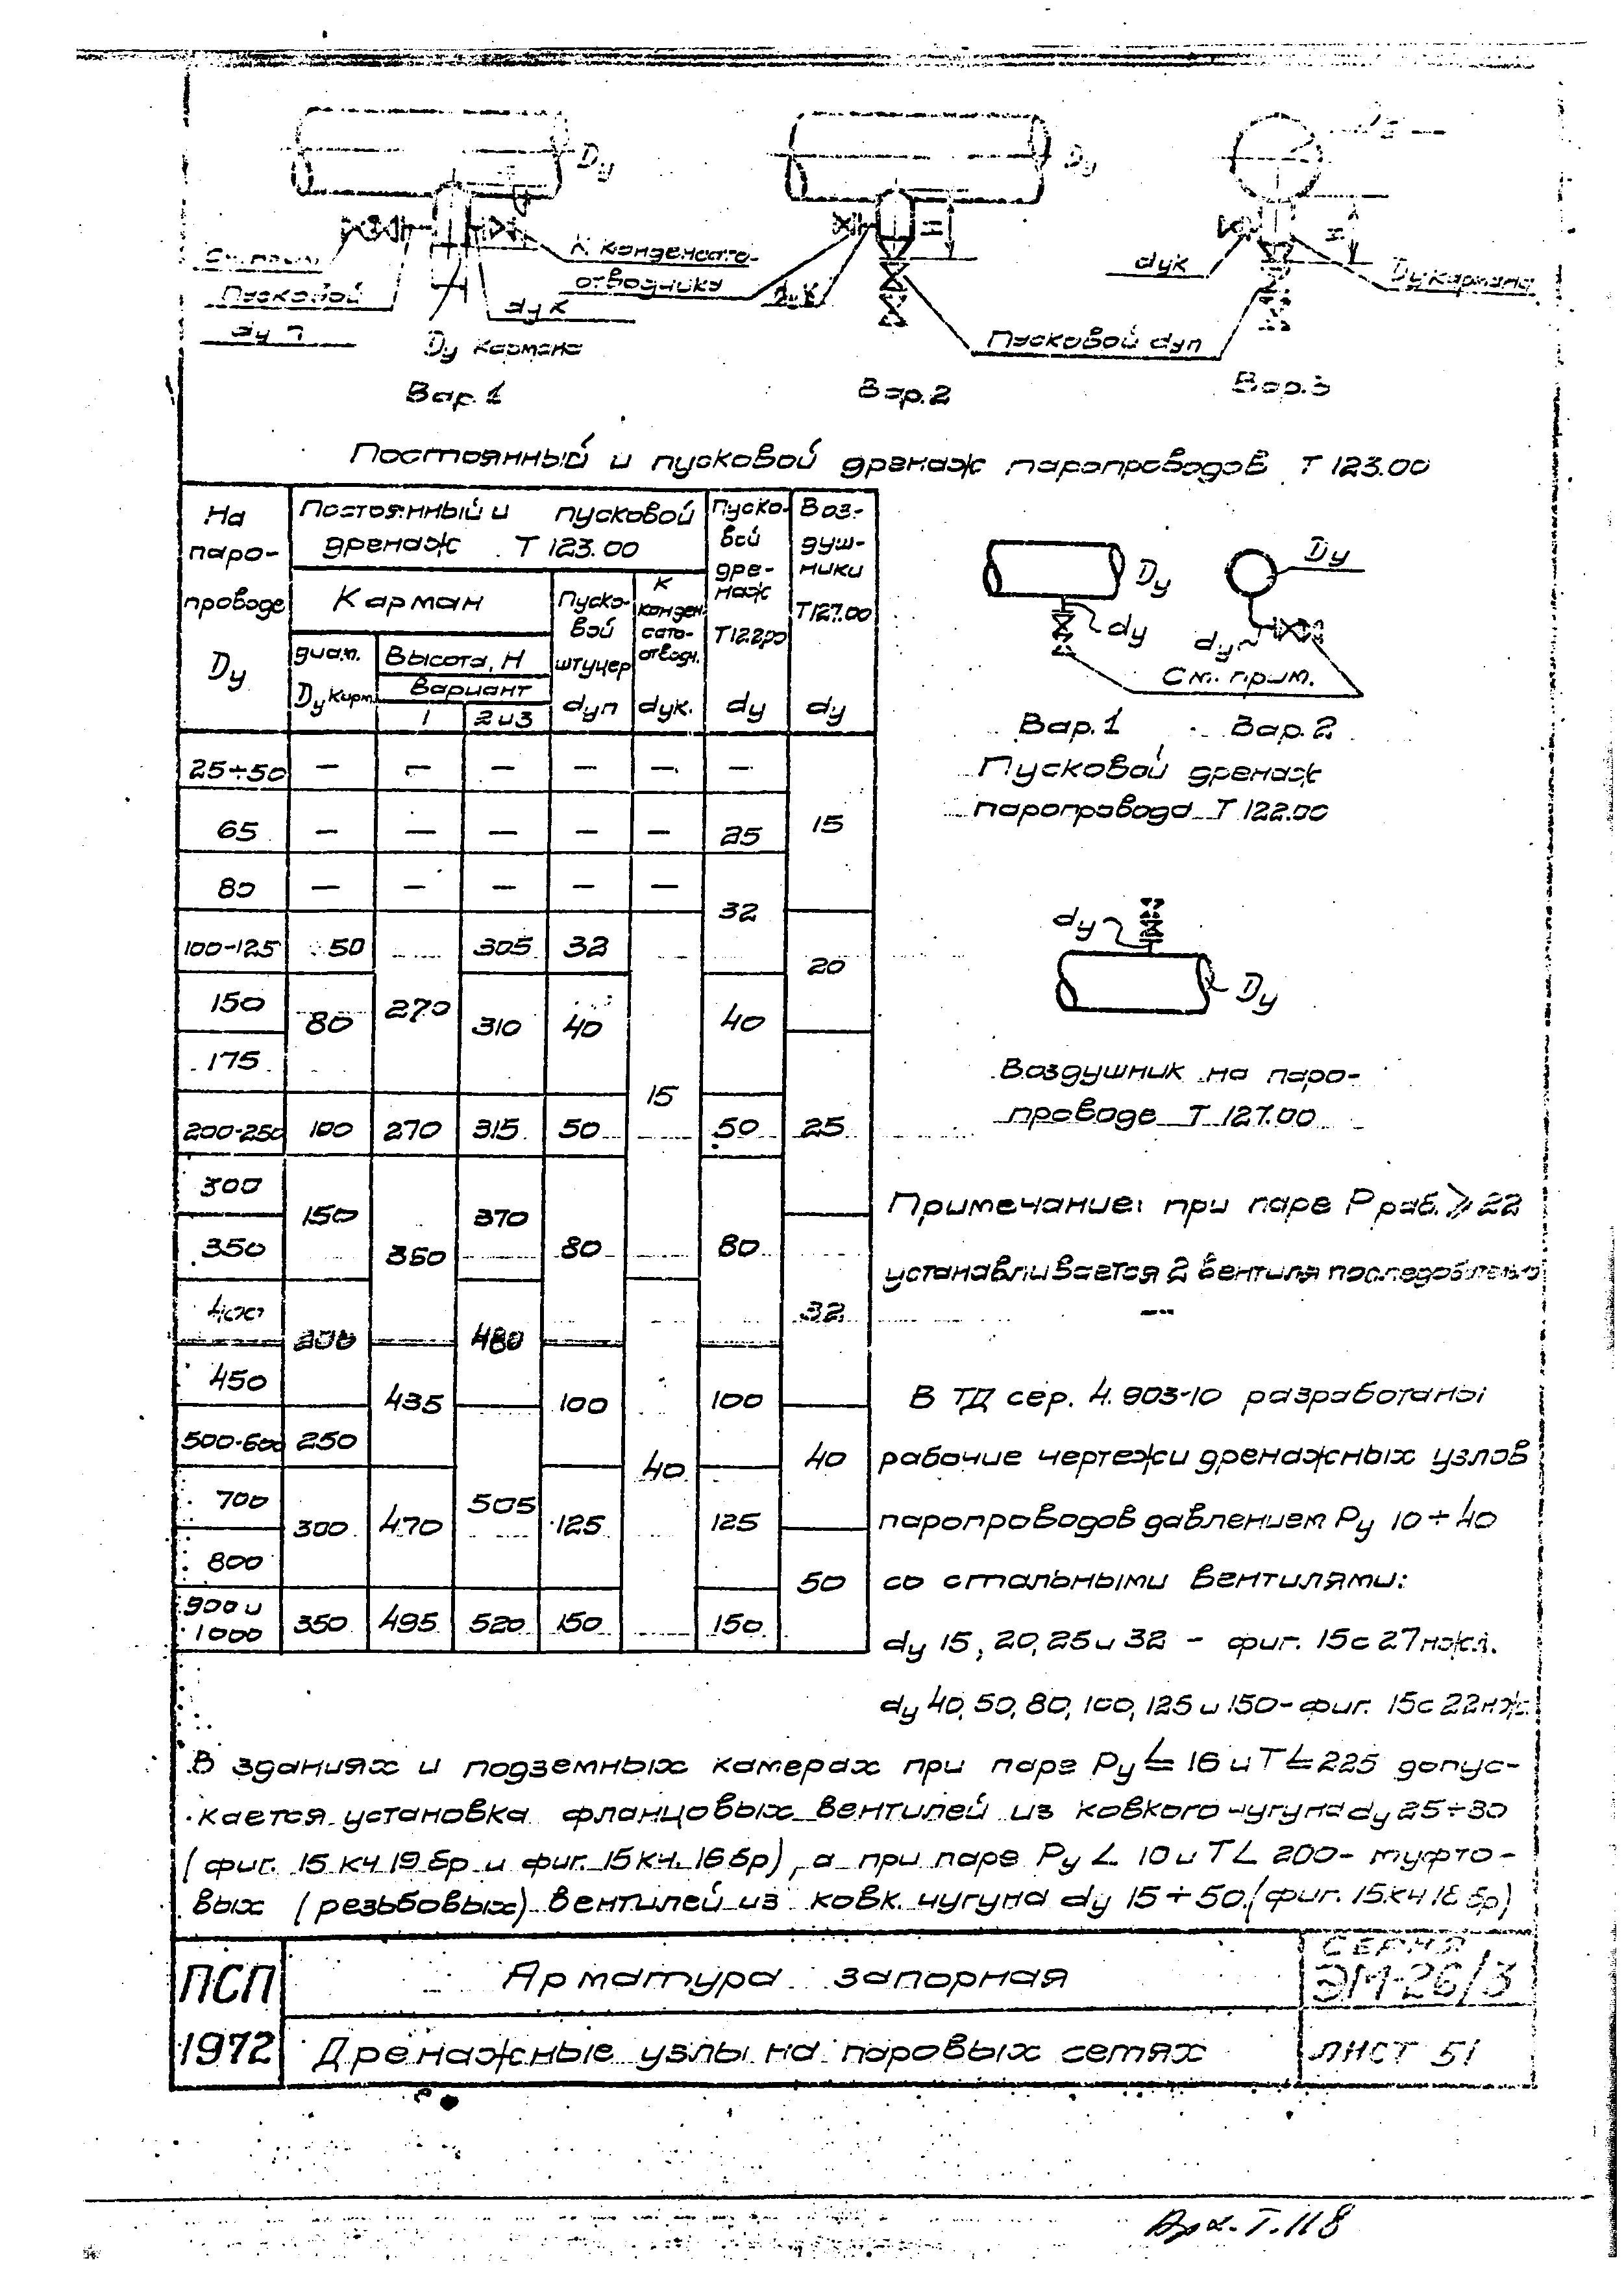 Dу
Dу
К конденсато-
Пусковой
отводчика
dук
dук
dу п
dук
Dу кармана
Dу кармана
Пусковой dуп
Вар. 1
Вар. 2
Вар. 3
Постоянный и пусковой дренаж паропроводов Т 123.00
На паро- проводе Dу
Постоянный и пусковой
дренаж Т 123.00
Пуско-
вой
дре-
наж
Т122.00
dу
Воз-
душ-
ники
Т127.00
dу
Карман
Пуско-
вой
штуцер
dуп
К
конден.
сато-
отводч.
dук.
диам.
Dу карм.
Высота, Н
Вариант
1
2 и 3
25÷50 — — — — — —
65 — — — — — 25
15
80 — — — — —
32
100-125 50 305 32
20
150
270
80 310 40 40
175
15
200-250 100 270 315 50 50 25
300
150 370
350 360 80 80
400
32
200 480
450
435 100 100
500-600 250
40 40
700
505
300 470 125 125
800
50
900 и
1000
350 495 520 150 150
Dу
Dу
dу
dу
См. прим.
Вар. 1
Вар. 2
Пусковой дренаж
паропровода Т 122.00
dу
Dу
Воздушник на паро-
проводе Т 127.00
Примечание: при паре Р раб. ⩾ 22
устанавливается 2 вентиля последовательно
В ТД сер. 4.903-10 разработаны
рабочие чертежи дренажных узлов
паропроводов давлением Ру 10÷40
со стальными вентилями:
dу 15, 20, 25 и 32 - фиг. 15с27нж1.
dу 40, 50, 80, 100, 125 и 150-фиг. 15с22нж.
В зданиях и подземных камерах при паре Ру ⩽ 16 и Т ⩽ 225 допус-
кается установка фланцовых вентилей из ковкого чугуна dу 25÷80
(фиг. 15кч19бр и фиг. 15кч16бр), а при паре Ру < 10 и Т < 200- муфто-
вых (резьбовых) вентилей из ковк. чугуна dу 15÷50 (фиг. 15кч18бр)
ПСП
1972
Арматура запорная
Дренажные узлы на паровых сетях
СЕРИЯ
ЭМ-26/3
ЛИСТ 51
Арх. Т.118